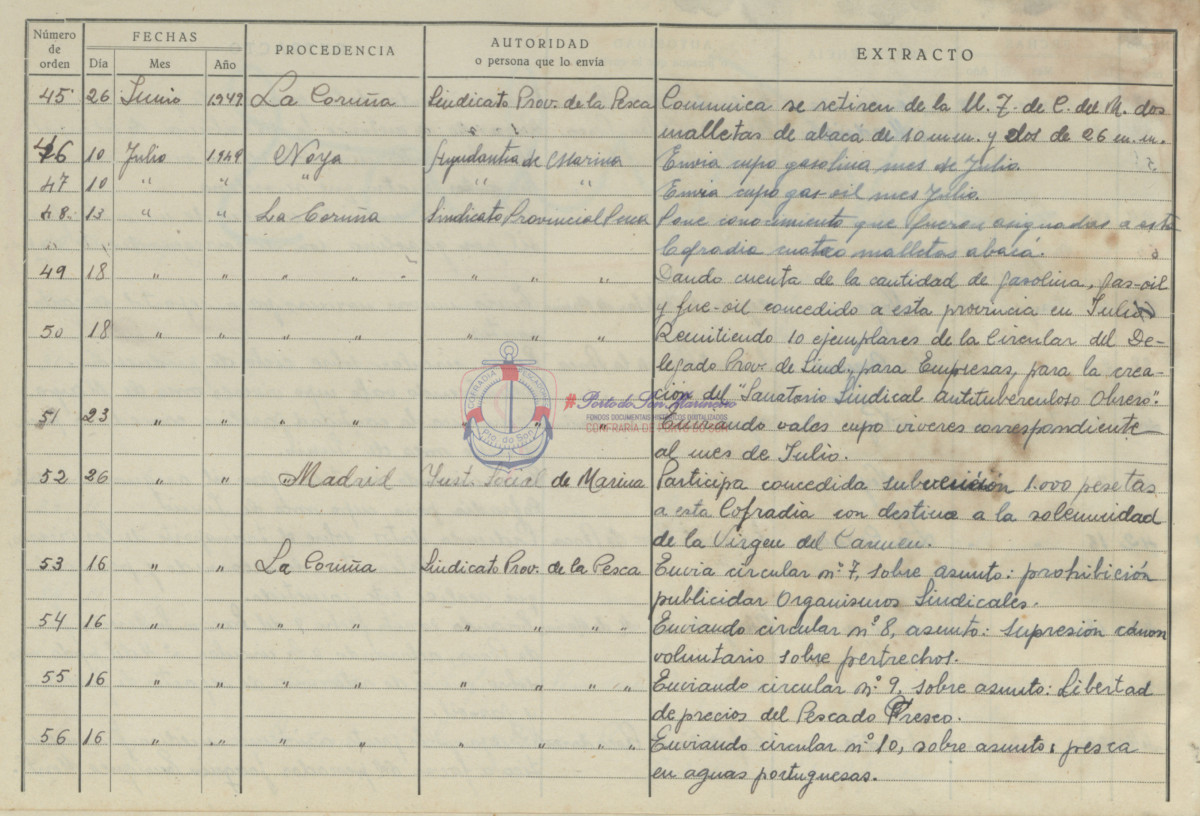 Número de orden FECHAS PROCEDENCIA AUTORIDAD o persona que lo envía EXTRACTO
Día Mes Año
45 26 Junio 1949 La Coruña Sindicato Prov. de la Pesca Comunica se retiren de la U. J. de C. del M. dos
malletas de abacá de 10 m.m. y dos de 26 m.m.
46 10 Julio 1949 Noya Ayudantia de Marina Envia cupo gasolina mes de Julio.
47 10 " " " " " Envia cupo gas-oil mes Julio.
48. 13 " " La Coruña Sindicato Provincial Pesca Pone conocimiento que fueron asignadas a esta
Cofradia cuatro malletas abacá.
49 18 " " " " " " " Dando cuenta de la cantidad de gasolina, gas-oil
y fue-oil concedido a esta provincia en Julio
50 18 " " " " " " " Remitiendo 10 ejemplares de la Circular del De-
legado Prov. de Sind., para Empresas, para la crea-
ción del "Sanatorio Sindical Antituberculoso Obrero".
51 23 " " " " " " " Enviando vales cupo viveres correspondiente
al mes de Julio.
52 26 " " Madrid Inst. Social de Marina Participa concedida subvención 1.000 pesetas
a esta Cofradia con destino a la solemnidad
de la Virgen del Carmen.
53 16 " " La Coruña Sindicato Prov. de la Pesca Envia circular nº 7, sobre asunto: prohibición
publicidar Organismos Sindicales.
54 16 " " " " " " " " Enviando circular nº 8, asunto: supresión cánon
voluntario sobre pertrechos.
55 16 " " " " " " " " Enviando circular nº 9, sobre asunto: Libertad
de precios del Pescado Fresco.
56 16 " " " " " " " " Enviando circular nº 10, sobre asunto: pesca
en aguas portuguesas.
COFRADIA PESCADORES
Pto. do Son
#Porto do Son Mariñeiro
FONDOS DOCUMENTAIS HISTÓRICOS DIGITALIZADOS
CONFRARÍA DE PORTO DO SON